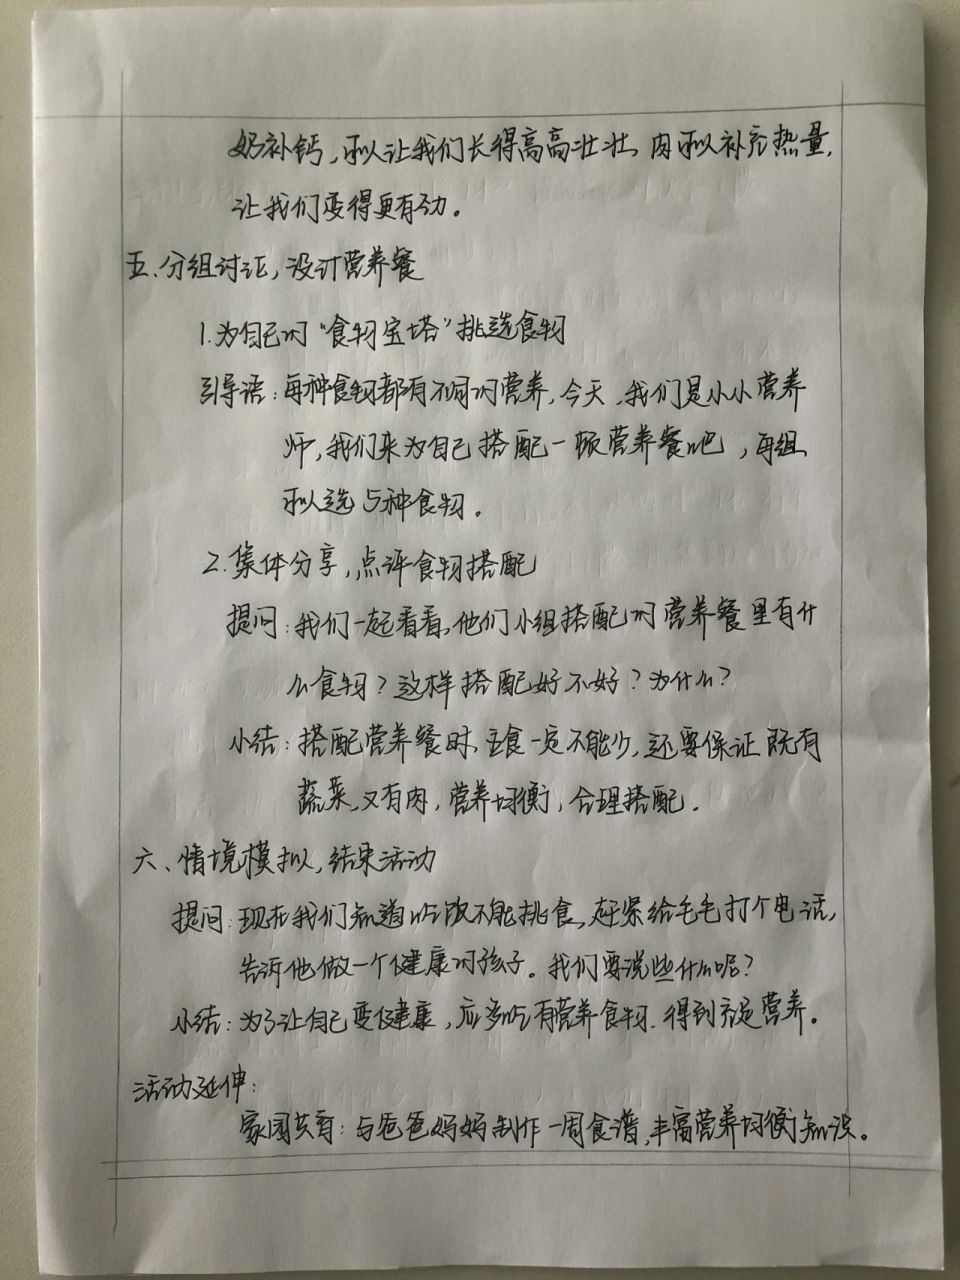 奶补钙,可以让我们长得高高壮壮,肉可以补充热量,
让我们变得更有劲。
五、分组讨论,设计营养餐
1.为自己的“食物宝塔”挑选食物
引导语:每种食物都有不同的营养,今天,我们是小小营养
师,我们来为自己搭配一顿营养餐吧,每组
可以选5种食物。
2.集体分享,点评食物搭配
提问:我们一起看看,他们小组搭配的营养餐里有什
么食物?这样搭配好不好?为什么?
小结:搭配营养餐时,主食一定不能少,还要保证既有
蔬菜,又有肉,营养均衡,合理搭配.
六、情境模拟,结束活动
提问:现在我们知道吃饭不能挑食,赶紧给毛毛打个电话,
告诉他做一个健康的孩子。我们要说些什么呢?
小结:为了让自己变健康,应多吃有营养食物.得到充足营养。
活动延伸:
家园共育:与爸爸妈妈制作一周食谱,丰富营养均衡知识。